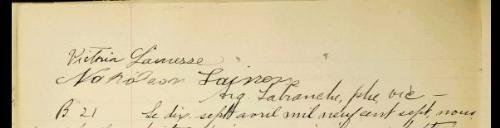 Victoria Lamesse
Napoleon
Arg Labranche, ptre, vic -
B 21 Le dix sept avril mil neuf cent sept, nous